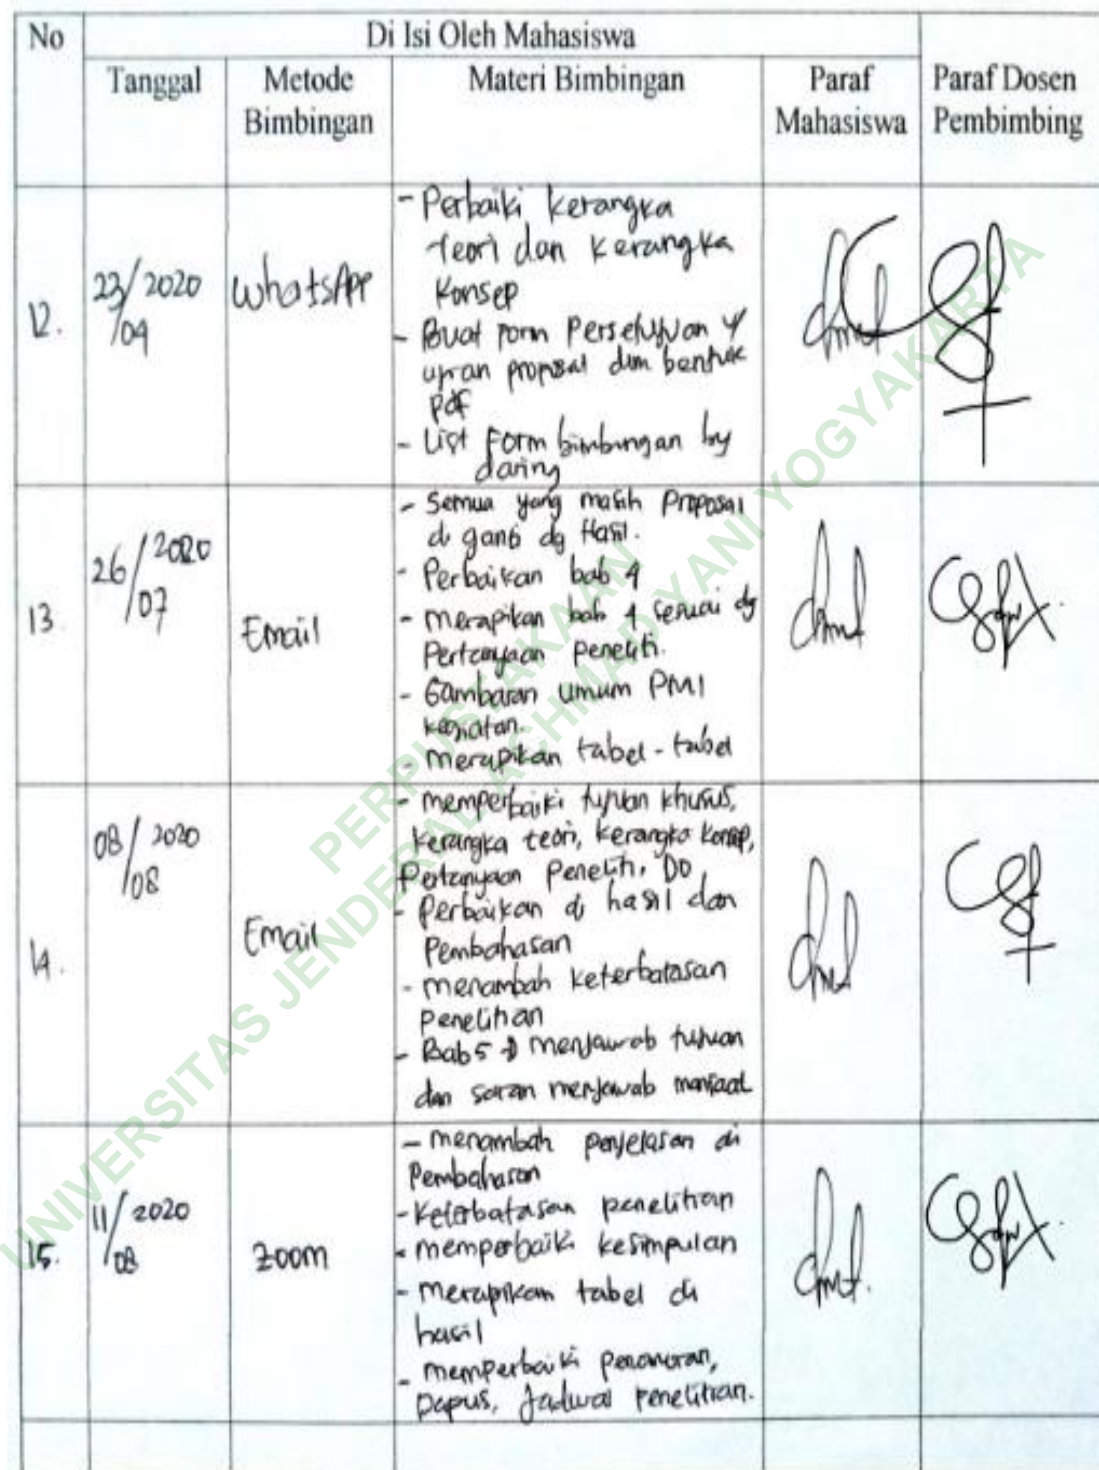 No
Di Isi Oleh Mahasiswa
Tanggal
Metode
Bimbingan
Materi Bimbingan
Paraf
Mahasiswa
Paraf Dosen
Pembimbing
12.
23/2020
/04
WhatsApp
- Perbaiki kerangka
teori dan kerangka
Konsep
- Buat form Persetujuan
ujian proposal dlm bentuk
pdf
- List Form bimbingan by
daring
13.
26/2020
/07
Email
- Semua yang masih Proposal
di ganti dg Hasil.
- Perbaikan bab 4
- merapikan bab 4 sesuai dg
Pertanyaan peneliti.
- Gambaran umum PMI
kegiatan.
- merapikan tabel-tabel
14.
08/2020
/08
Email
- memperbaiki tujuan khusus,
kerangka teori, kerangka konsep,
Pertanyaan Peneliti, DO
- Perbaikan di hasil dan
Pembahasan
- menambah keterbatasan
Penelitian
- Bab 5 menjawab tujuan
dan saran menjawab manfaat
15.
11/2020
/08
Zoom
- menambah penjelasan di
Pembahasan
- Keterbatasan penelitian
- memperbaiki kesimpulan
- merapikan tabel di
hasil
- memperbaiki penomoran,
Dapus, Jadwal Penelitian.
PERPUSTAKAAN
UNIVERSITAS JENDERAL ACHMAD YANI YOGYAKARTA